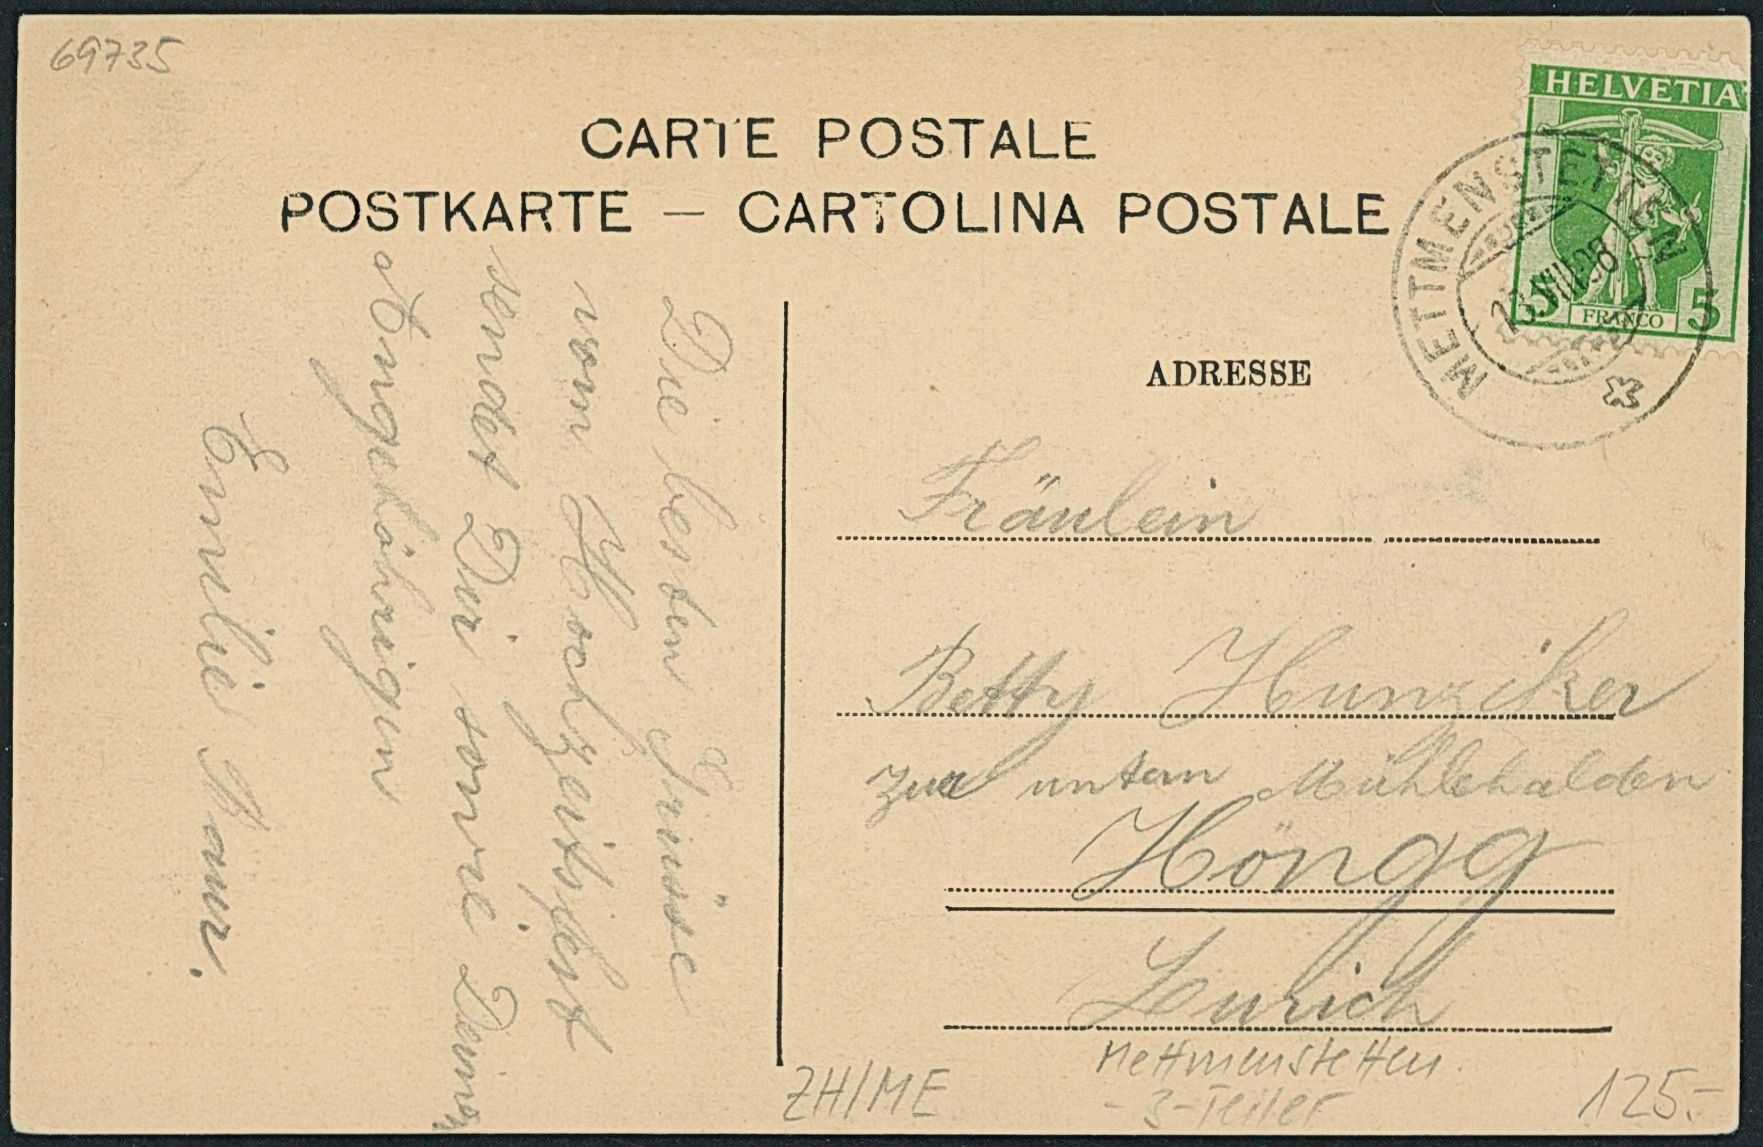 69735
CARTE POSTALE
POSTKARTE — CARTOLINA POSTALE
HELVETIA
5 FRANCO 5
METTMENSTETTEN
13.VIII.08
ADRESSE
Die besten Grüsse
vom Hochzeitsfest
sendet Dir sowie Deinen
Angehöhrigen
Emilie Baur.
Fräulein
Betty Hunziker
zur untern Mühlehalden
Höngg
Zürich
Mettmenstetten
- 3-Teiler
ZH/ME
125.-